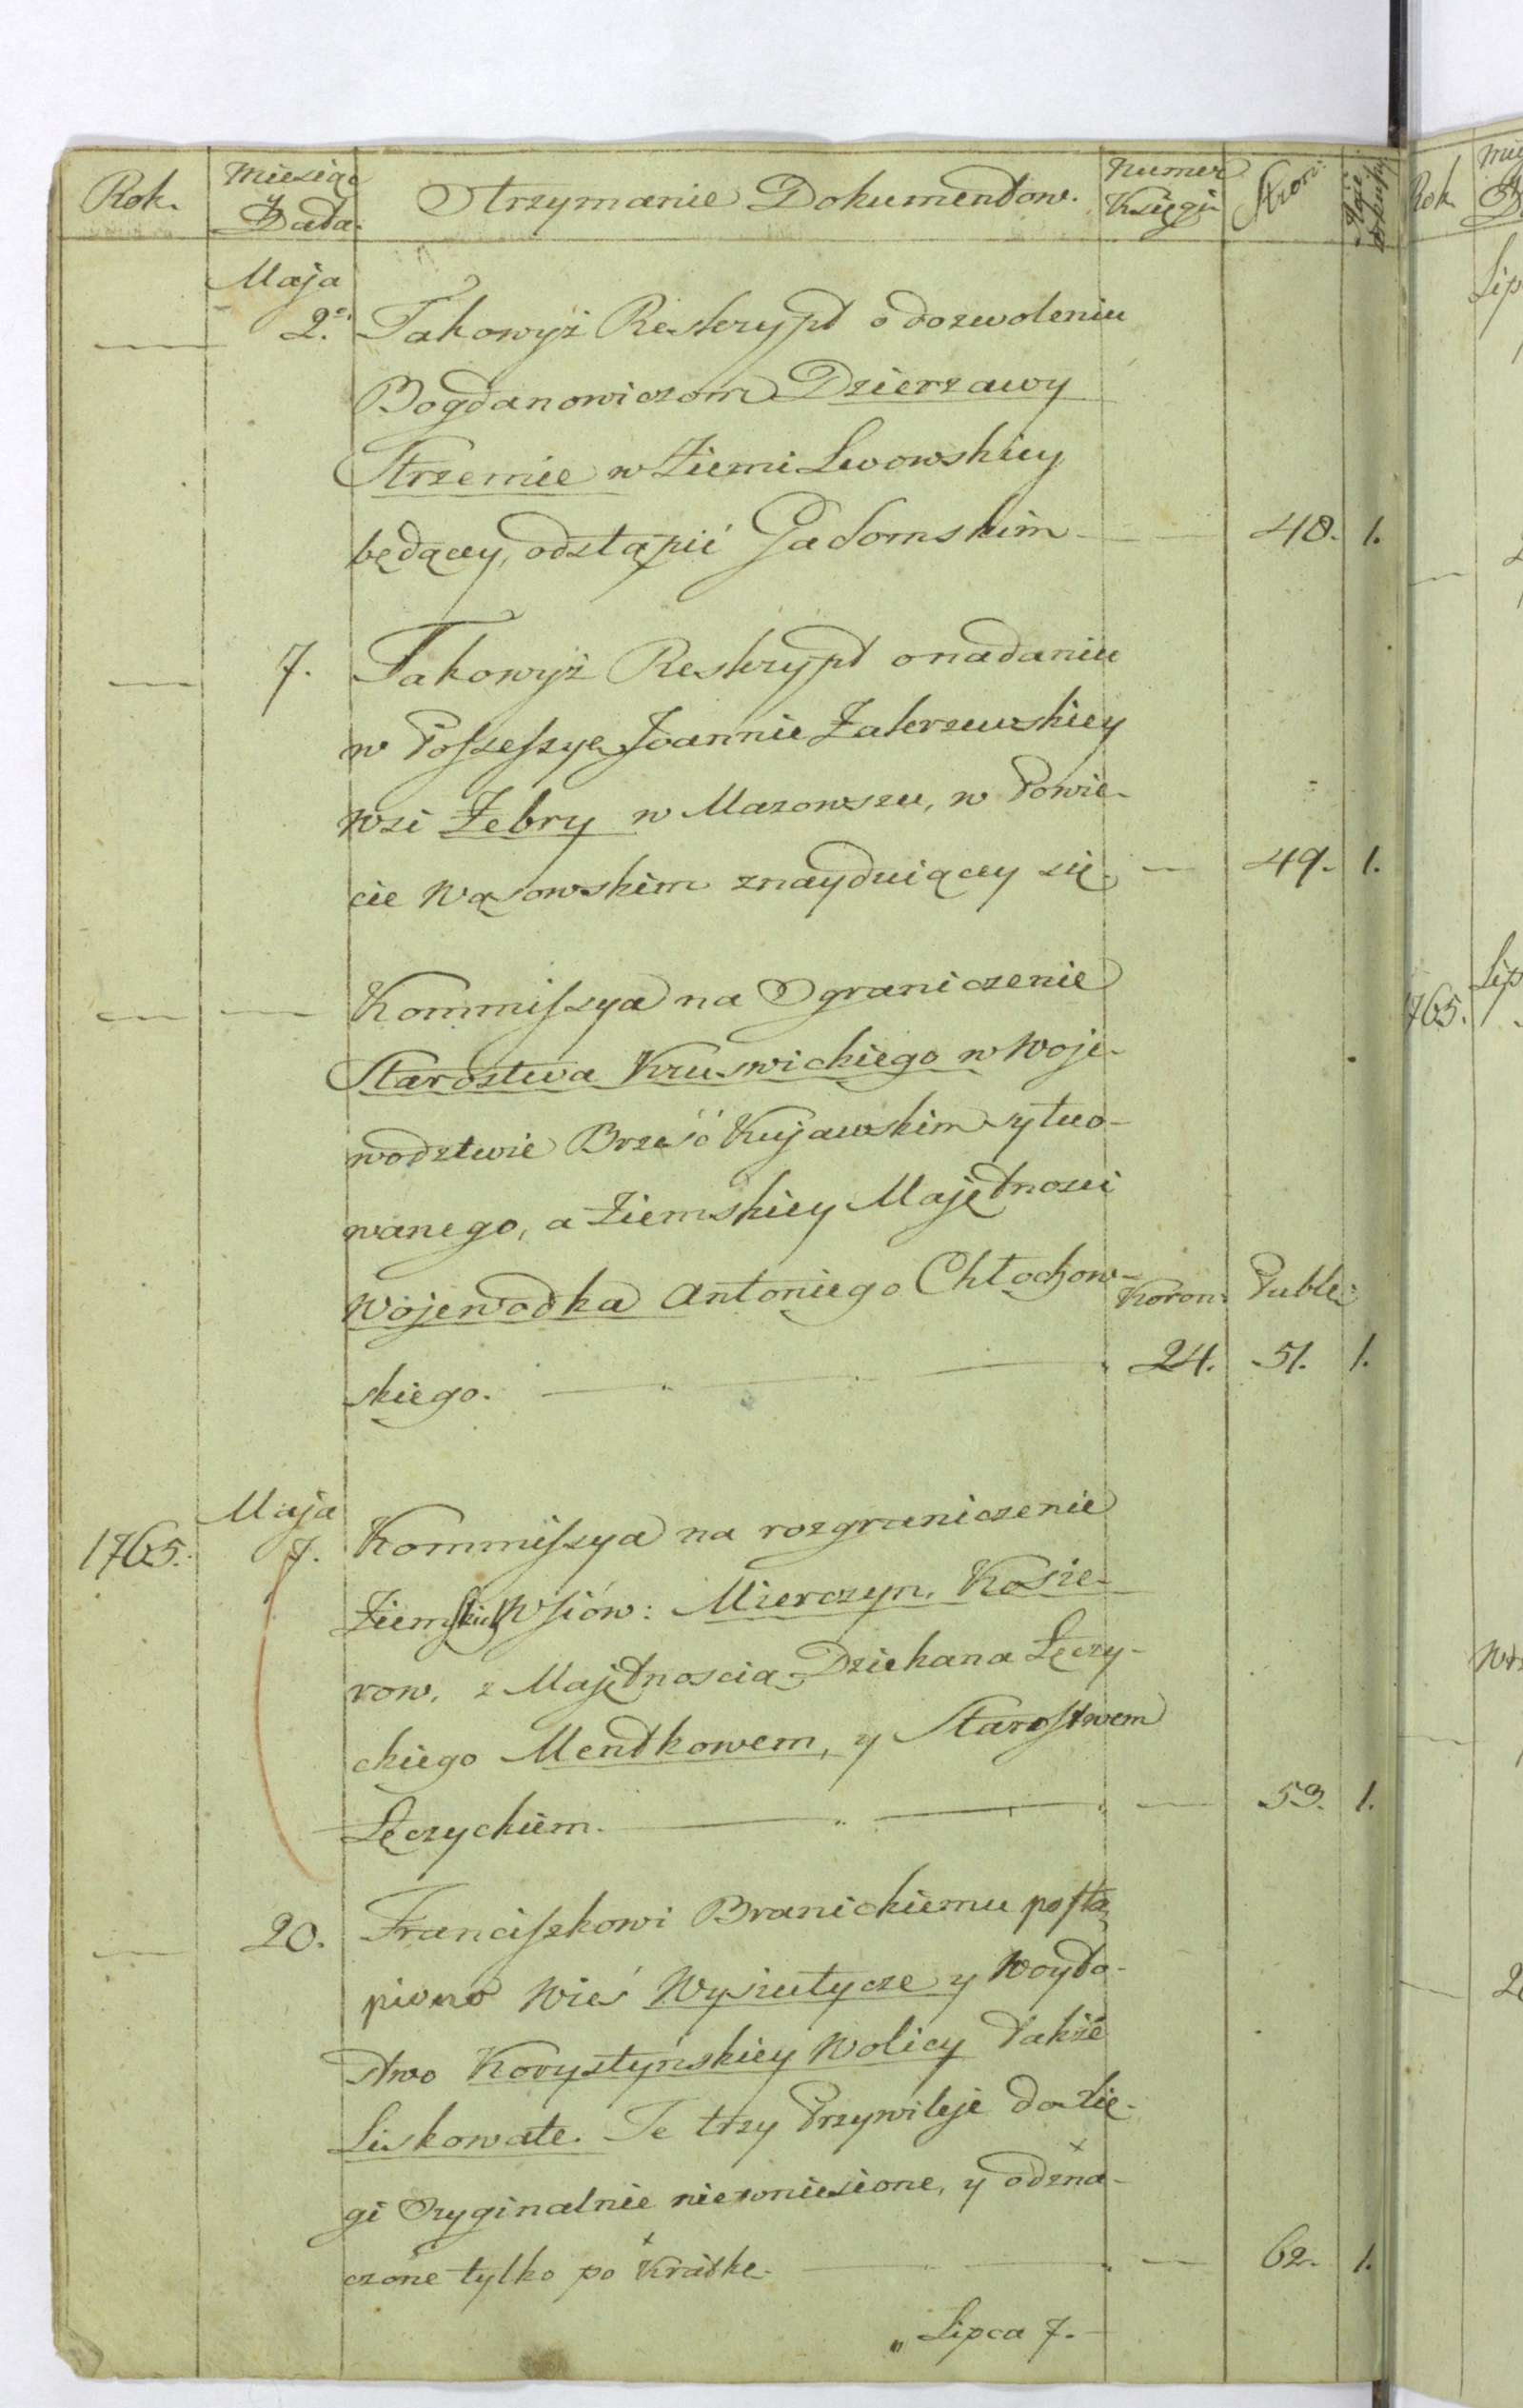 Rok. Miesiąc y Data. Otrzymanie Dokumentow. Numer Księgi Stron:
Maja
2. Takowyż Reskrypt o dozwoleniu
Bogdanowiczom Dzierzawy
Strzemie w Ziemi Lwowskiey
będącey, odstąpić Gadomskim 48. 1.
7. Takowyż Reskrypt o nadaniu
w Possessyą Joannie Zakrzewskiey
wsi Żebry w Mazowszu, w Powie-
cie Wąsowskim znayduiącey się. 49. 1.
Kommissya na Ograniczenie
Starostwa Kruswickiego w Woje-
wodztwie Brześć Kujawskim sytuo-
wanego, a Ziemskiey Majętnosci
Wojewodka Antoniego Chłochow- Koron: Publ:
skiego. 24. 51. 1.
Maja
1765. 7. Kommissya na rozgraniczenie
Ziemskich Wsiów: Mierczyn, Kosie-
row, z Majętnoscią Dziekana Łęczy-
ckiego Mentkowem, y Starostwem
Łęczyckiem. 53. 1.
20. Franciszkowi Branickiemu postą-
piono Wieś Wysiutycze y Woyto-
stwo Korystynskiey Wolicy także
Liskowate. Te trzy Przywileje do Xię-
gi Oryginalnie niewniesione, y odzna-
czone tylko po Krótke. 62. 1.
„ Lipca 7.
Rok.
Lip
1765.
Lip